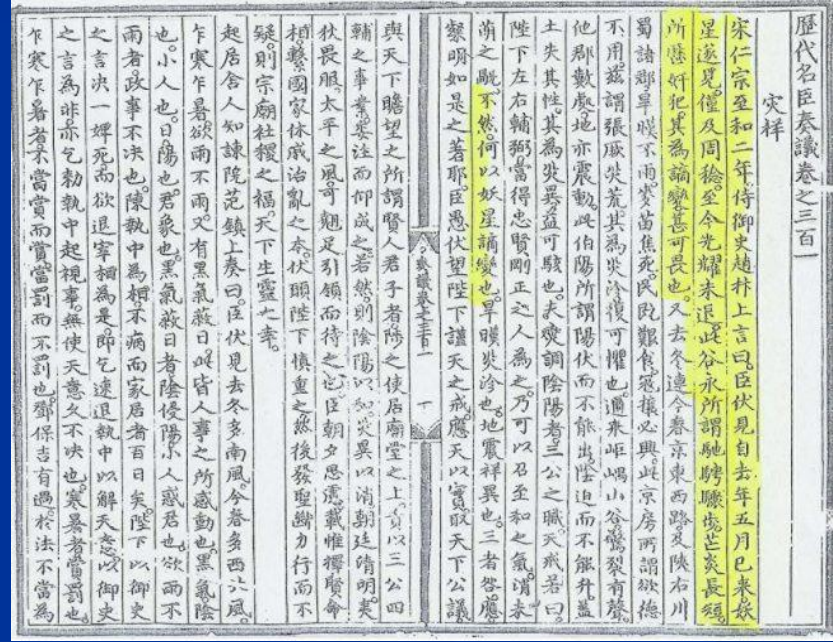 歷代名臣奏議卷之三百一
灾祥
宋仁宗至和二年侍御史趙抃上言曰臣伏見自去年五月已來妖
星遂見僅及周稔至今光耀未退此谷永所謂馳騁驟步芒炎長短
所歷奸犯其為謫變甚可畏也又去冬連今春京東西路及陜右川
蜀諸郡旱暵不雨麥苗焦死民既艱食寇攘必興此京房所謂欲德
不用茲謂張厥灾荒其為灾沴復可懼也邇來岠嵎山谷驚裂有聲
他郡數處地亦震動此伯陽所謂陽伏而不能出陰迫而不能升蓋
土失其性其為灾異益可駭也夫燮調陰陽者三公之職天戒若曰
陛下左右輔弼當得忠賢剛正之人為之乃可以召至和之氣消未
萌之
不然何以妖星謫變也旱暵灾沴也地震祥異也三者咎應
如是之著耶臣愚伏望陛下謹天之戒應天以實取天下公議
奏議卷之三百一
一
與天下瞻望之所謂賢人君子者陟之使居廟堂之上責以三公四
輔之事業委注而仰成之若然則陰陽以和灾異以消朝廷清明夷
狄畏服太平之風可翹足引領而待之也臣朝夕思慮載惟擇賢命
相繫國家休戚治亂之本伏願陛下慎重之然後發聖斷力行而不
疑則宗廟社稷之福天下生靈之幸
起居舍人知諫院范鎮上奏曰臣伏見去冬多南風今春多西北風
乍寒乍暑欲雨不雨又有黑氣蔽日此皆人事之所感動也黑氣陰
也小人也日陽也君象也黑氣蔽日者陰侵陽小人惑君也欲雨不
雨者政事不决也陳執中為相不病而家居者百日矣陛下以御史
之言决一婢死而欲退宰相為是即乞速退執中以解天意以御史
之言為非亦乞勑執中起視事無使天意久不决也寒暑者賞罰也
乍寒乍暑者不當賞而賞當罰而不罰也鄧保吉有過於法不當為